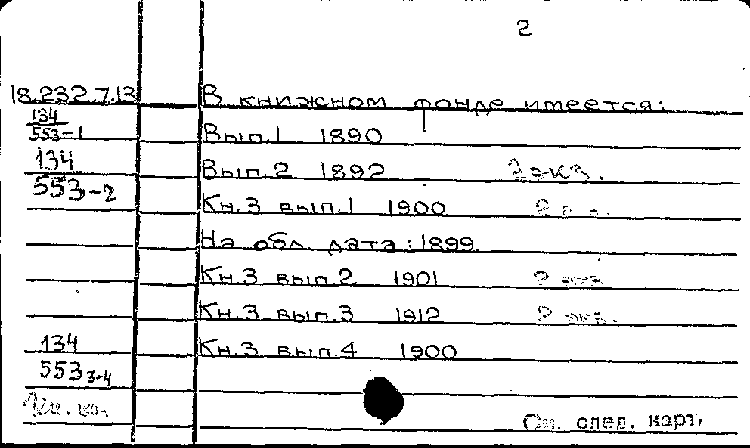 2
18.232.7.13 В книжном фонде имеется:
134
553-1 Вып.1 1890
134 Вып.2 1892 2 экз.
553-2
Кн.3 вып.1 1900 2
На обл. дата: 1899.
Кн.3 вып.2 1901 2 экз.
Кн.3 вып.3 1912 2 экз.
134 Кн.3 вып.4 1900
553 3-4
См. след. карт.